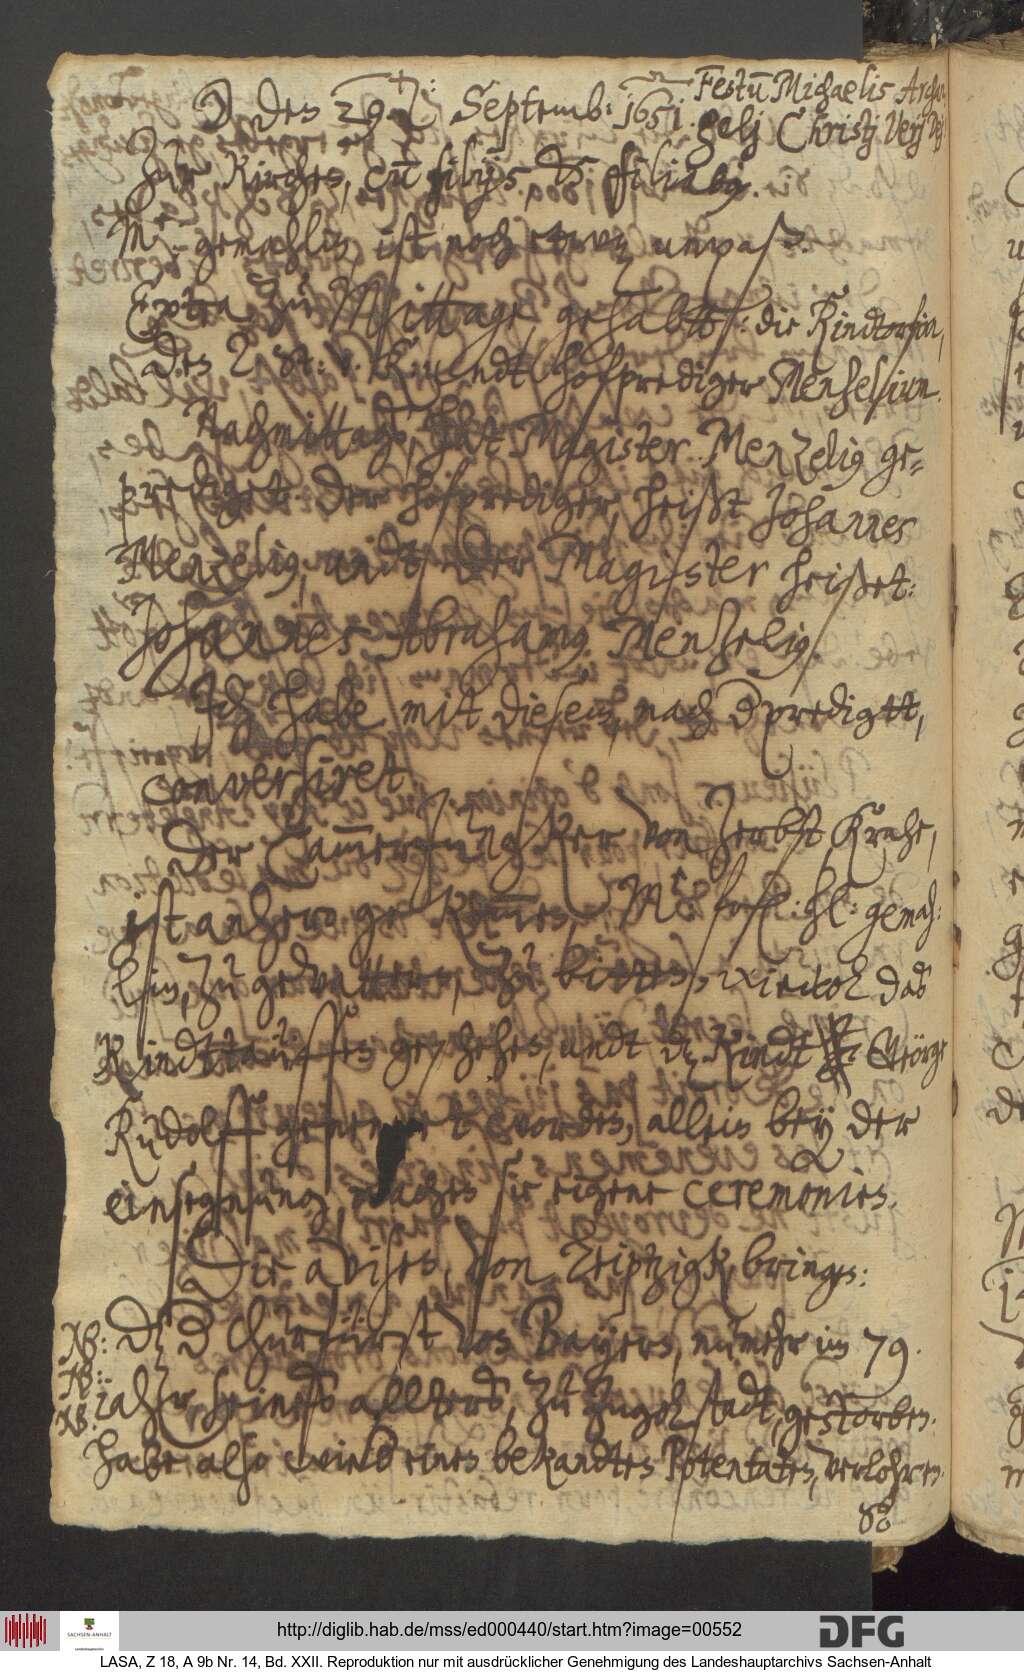 ☽ den 29. Septemb: 1651. Festū Michaelis Archan
gelj Christj Verj
Zur Kirchen, cū filijs, & filiabus.
Mã: gemahlin, ist noch etwaß unpaß.
Extra zu Mittage gehabtt: die Rindtorfin,
undt hofprediger Menselium.
Nachmittags, hat Magister Menzelius ge-
prediget: der hofprediger, heißt Johannes
Menzelius, undt der Magister heißet:
Johannes Abrahamus Menzelius.
Ich habe mit diesem, nach der predigtt,
conversiret.
Der Cam̄erJungker von Zerbst Krahe,
ist anhero gekom̄en, Meine hertzl: gemah:
lin, zu gevattern, zu bitten, wiewol das
Kindttauffen geschehen, undt das Kindt Geörge
Rudolff genennet worden, allein bey der
einsegnung, machen sie eigene ceremonien.
Die avisen, von Leiptzigk bringen:
NB: Daß der Churfürst von Bayern, nunmehr im 79.
NB: iahr, seines allters, zu Ingolstadt, gestorben.
NB: habe also wieder einen bekandten Potentaten, verlohren.
http://diglib.hab.de/mss/ed000440/start.htm?image=00552
DFG
SACHSEN-ANHALT
LASA, Z 18, A 9b Nr. 14, Bd. XXII. Reproduktion nur mit ausdrücklicher Genehmigung des Landeshauptarchivs Sachsen-Anhalt